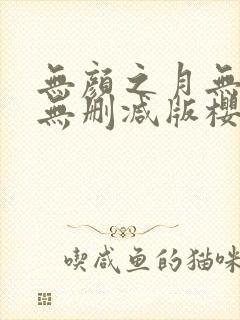 無顏之月無
無刪减版櫻
喫咸鱼的猫咪